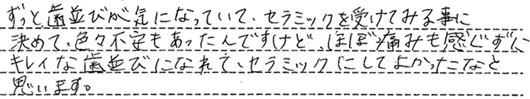 ずっと歯並びが気になっていて、セラミックを受けてみる事に
決めて、色々不安もあったんですけど、ほぼ痛みも感じずに
キレイな歯並びになれて、セラミックにしてよかったなと
思います。